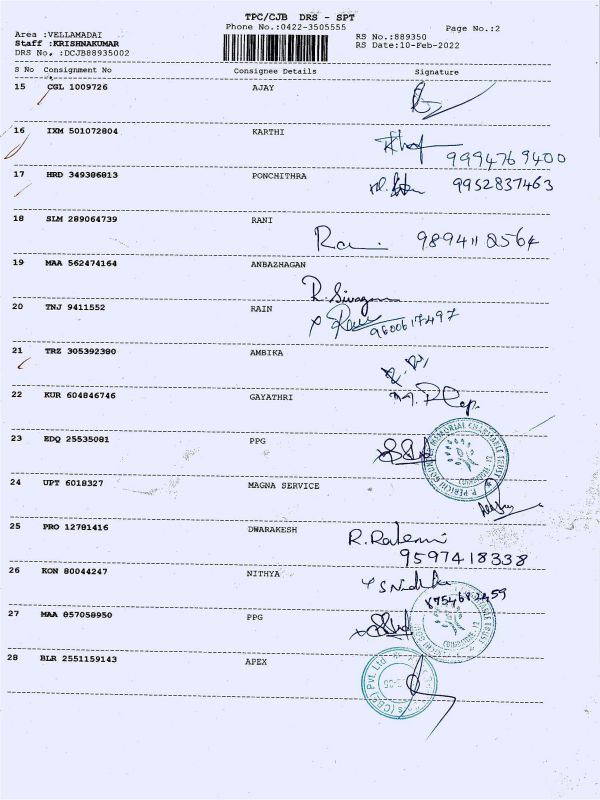 TPC/CJB DRS - SPT
Phone No.:0422-3505555
Page No.:2
Area :VELLAMADAI
Staff :KRISHNAKUMAR
DRS No. :DCJB88935002
RS No.:889350
RS Date:10-Feb-2022
S No Consignment No Consignee Details Signature
15 CGL 1009726 AJAY
16 IXM 501072804 KARTHI
9994769400
17 HRD 349386813 PONCHITHRA 9952837463
18 SLM 289064739 RANI
Rani 9894118564
19 MAA 562474164 ANBAZHAGAN
R. Sivagam
20 TNJ 9411552 RAIN
9600617497
21 TRZ 305392380 AMBIKA
22 KUR 604846746 GAYATHRI
23 EDQ 25535081 PPG
24 UPT 6018327 MAGNA SERVICE
25 PRO 12781416 DWARAKESH
9597418338
26 KON 80044247 NITHYA
8754682459
27 MAA 857058950 PPG
28 BLR 2551159143 APEX